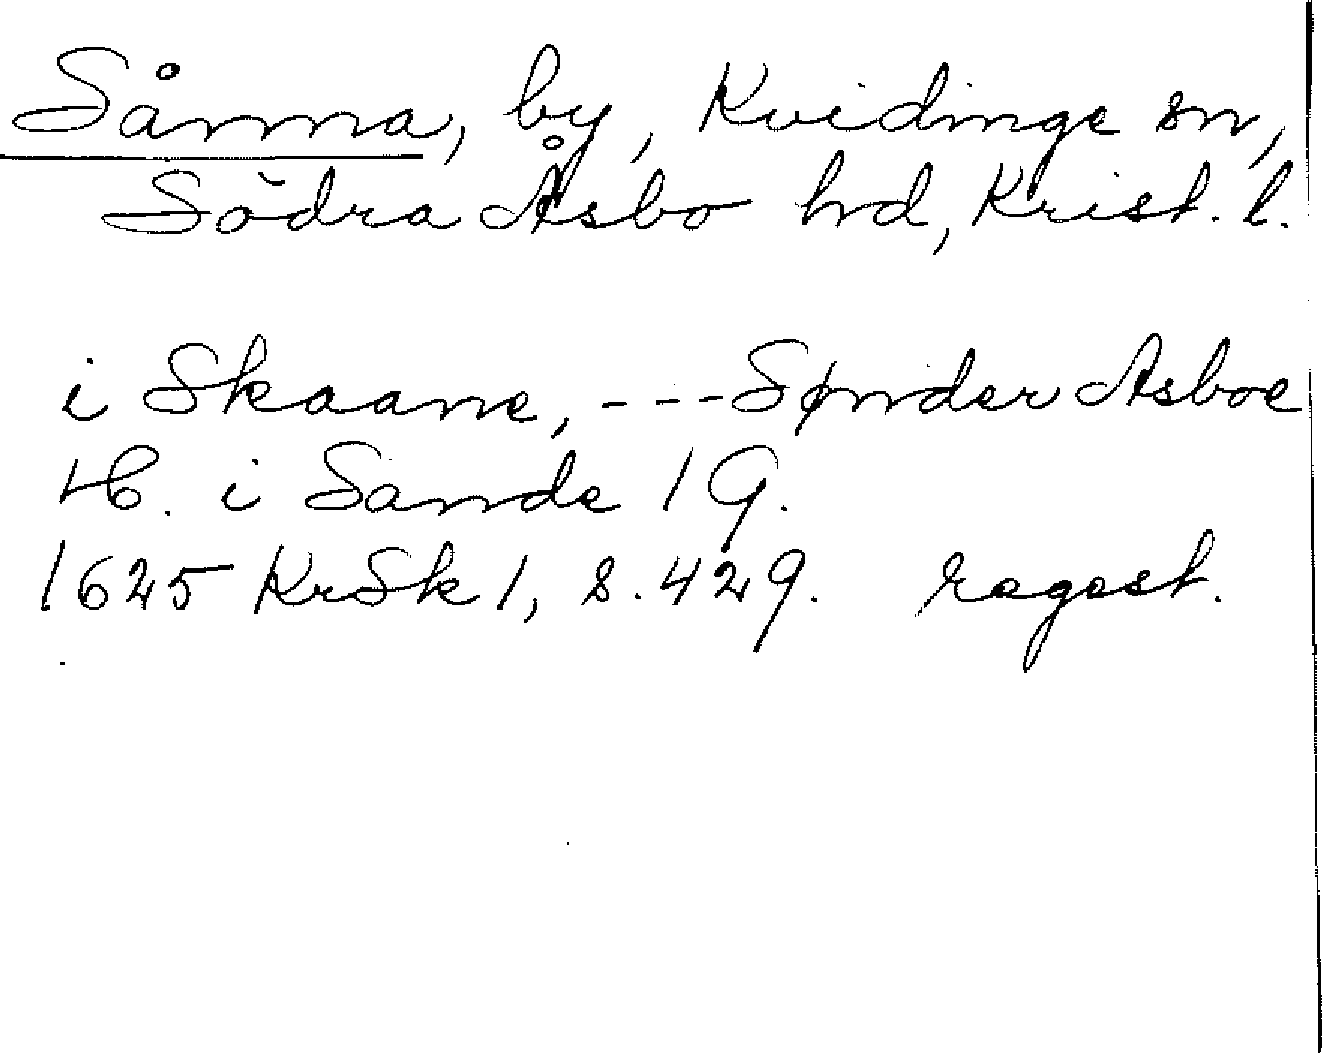 Sånna, by, Kvidinge sn,
Södra Åsbo hd, Krist. l.
i Skaane, - --- Sønder Asboe
H. i Sande 1 G.
1625 KrSk 1, s. 429. regest.